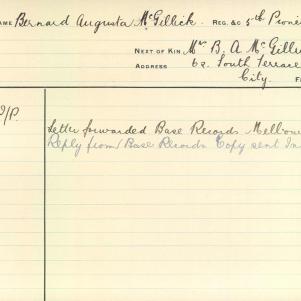 NAME Bernard Augusta McGillick. REG. &C 5th Pioni
NEXT OF KIN Mrs B. A McGilli
ADDRESS 62 South Terrace
City.
Letter forwarded Base Records Melbou
Reply from Base Records Copy sent In